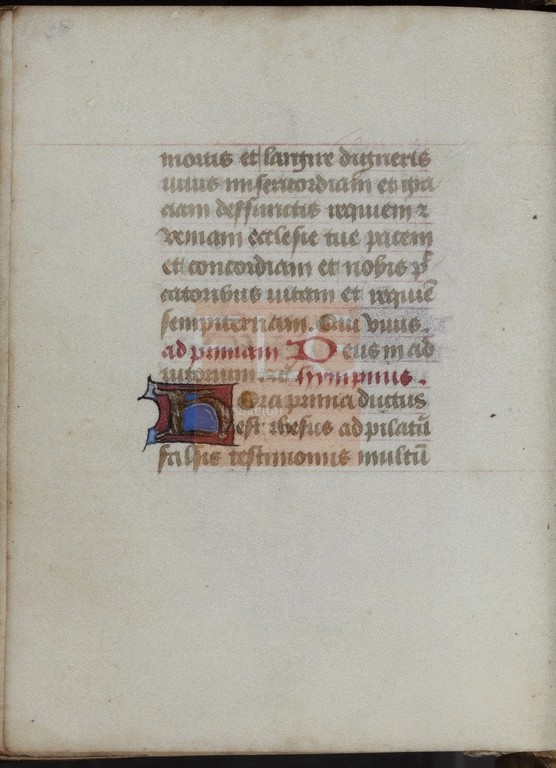 mortis et largire digneris
viuis misericordiam et gra
ciam deffunctis requiem ⁊
veniam ecclesie tue pacem
et concordiam et nobis pc̄
catoribus uitam et requiē
sempiternam. Qui viuis.
ad primam Deus in ad
iutorium. ac hympnus.
Hora prima ductus
est ihesus ad pilatū
falsis testimoniis multū